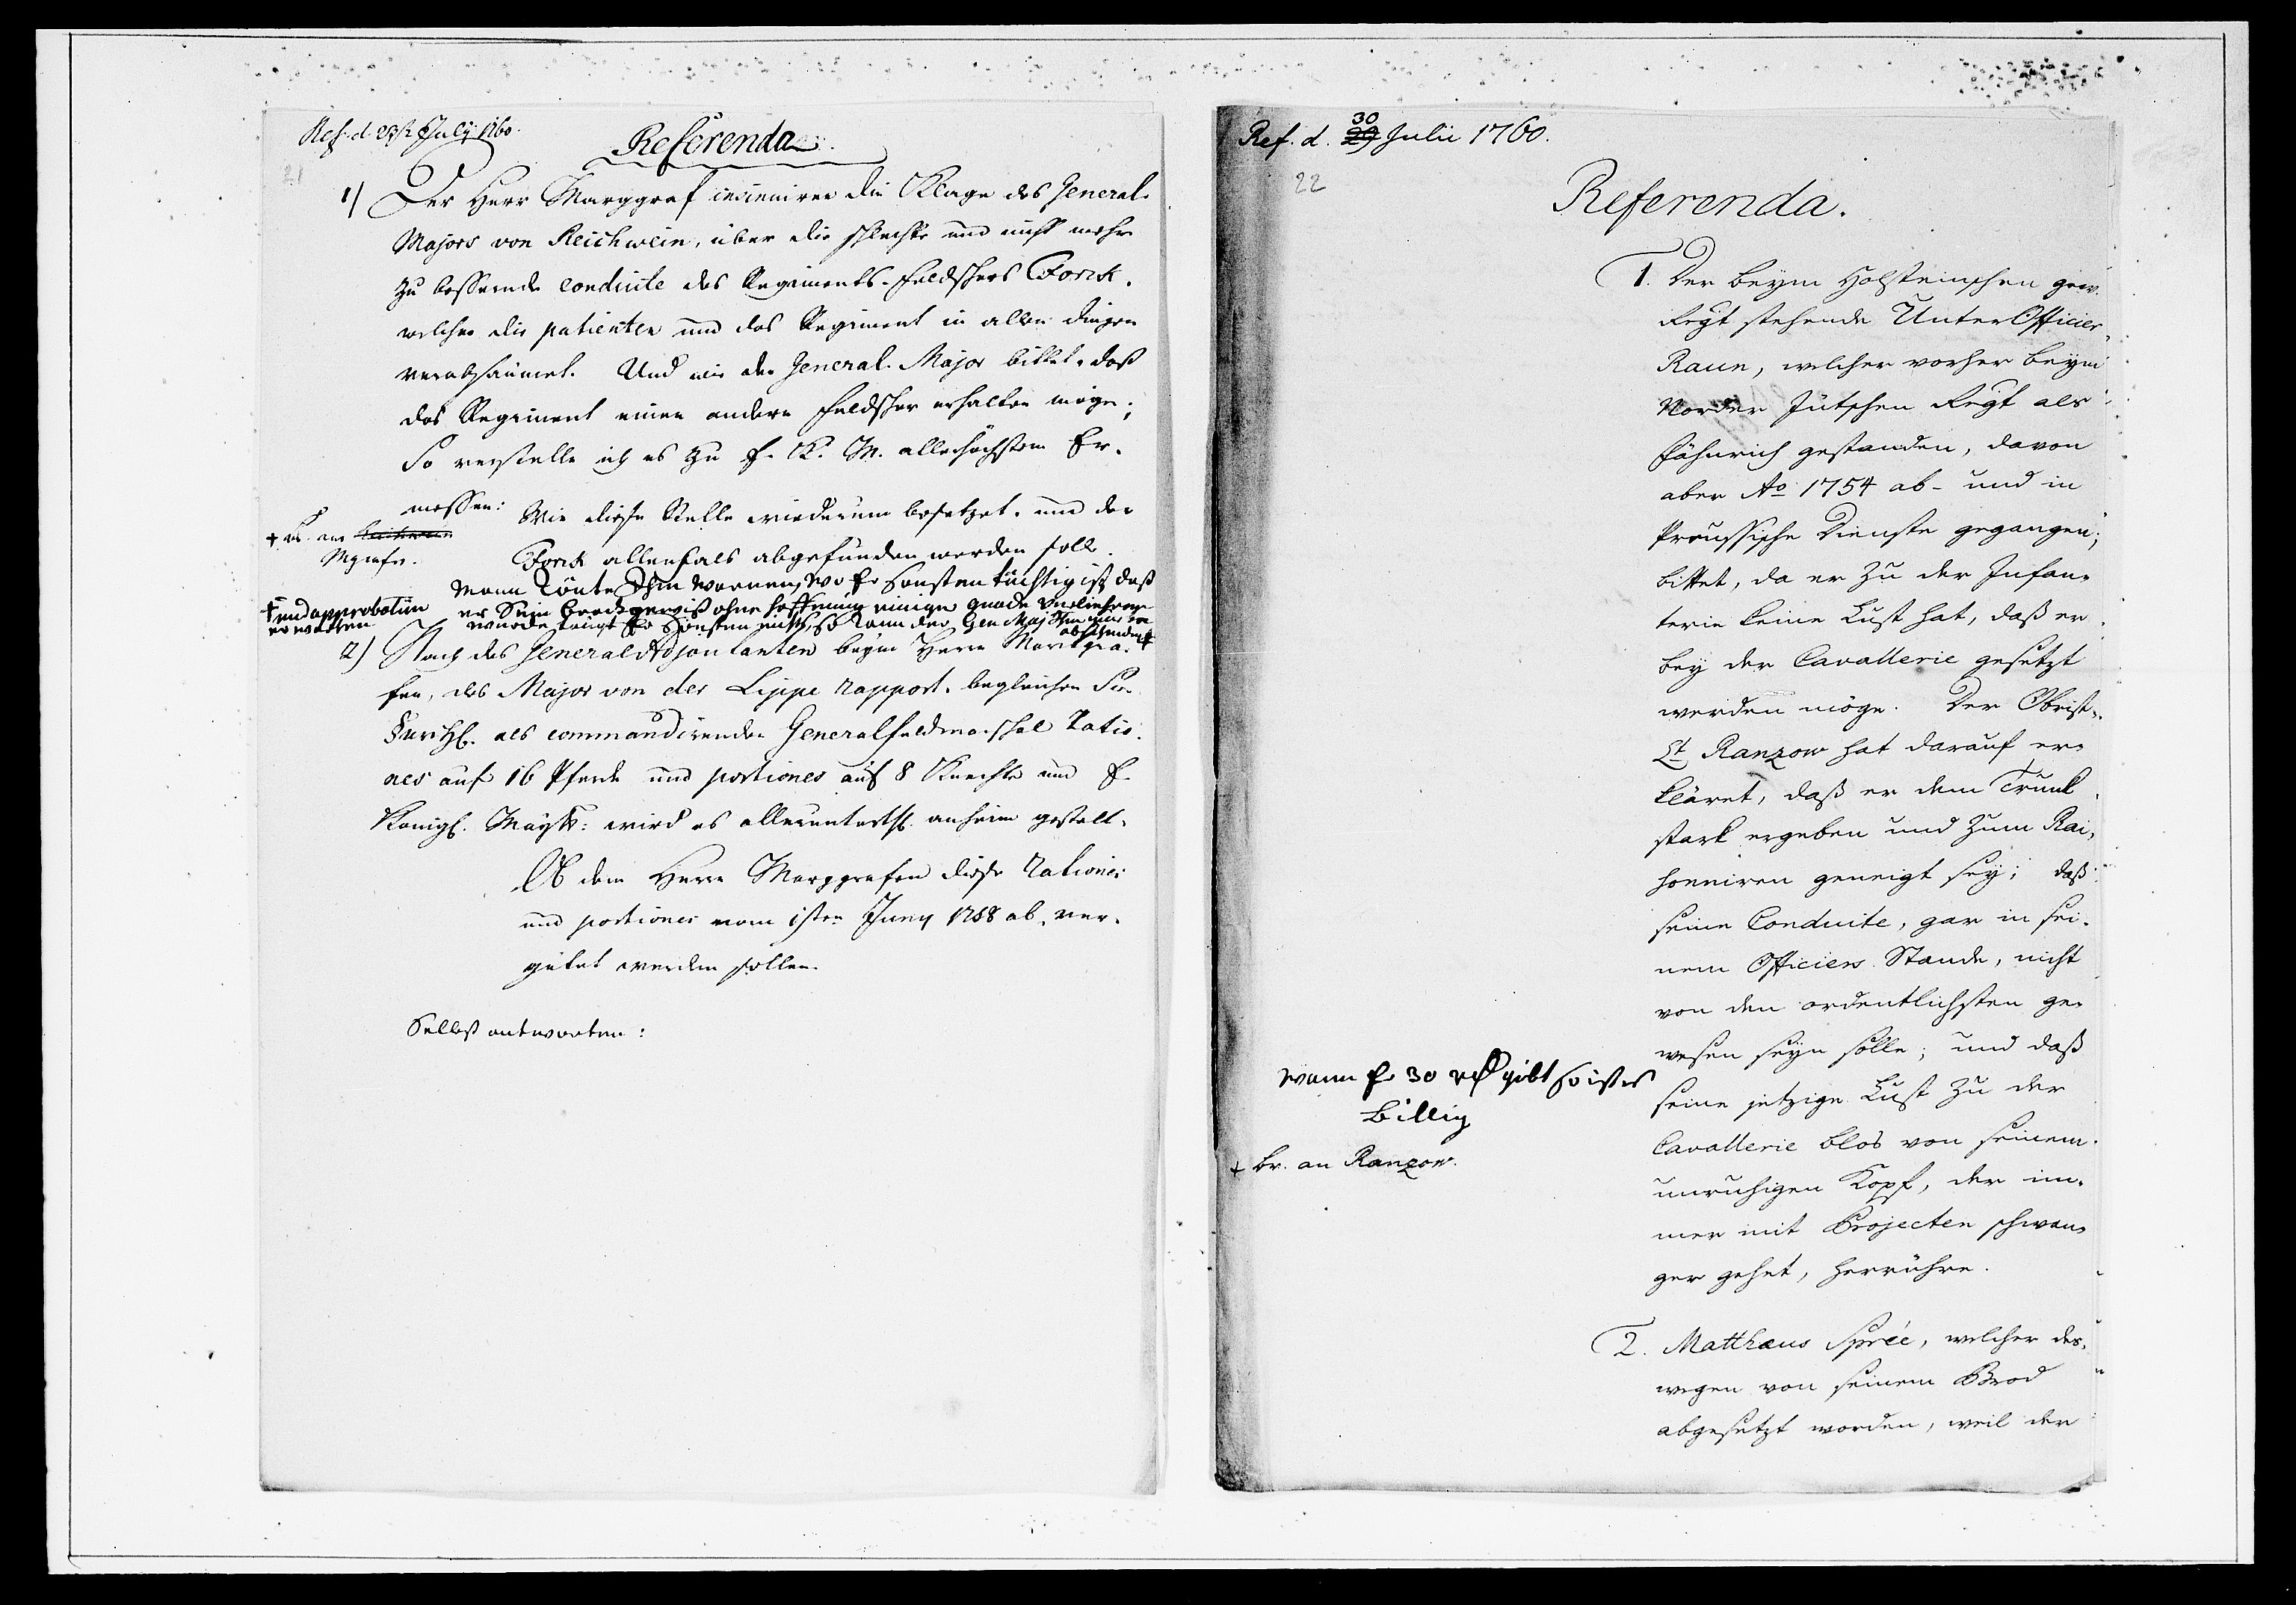 Ref. d. 29st July 1760.
21
Referenda
1) Der Herr Marggraf insinuiren die Klage des General-
Majors von Reichwein, über die schlechte und nicht mehr
zu bessernde conduite des Regiments-Feldschers Forck,
welcher die patienten und das Regiment in allen dingen
verabsäumet. Und wie der General-Major bittet, daß
das Regiment einen andern Feldscher erhalten möge;
So verstelle ich es zu E. K. M. allerhöchstem Er-
messen: Wie diese Stelle wiederum besetzet, und der
Forck allenfals abgefunden werden solle.
+ an
Mgrafen.
Mann könte Ihm warnen, wo Er sonsten tüchtig ist, daß
er Sein brodt gewiß ohne hoffnung einiger gnade verliehren
wurde taugt Er Sonsten nicht, so kann der Gen Maj
abschiedt +
+ und approbation
erwarten
2) Nach des General Adjoutanten beym Herrn Markgra-
fen, des Major von der Lippe rapport, begleichen Sr.
Durchl. als commandirender Generalfeldmarschal Ratio-
nes auf 16 Pferde und portiones auf 8 Knechte und E.
Königl. Maystt: wird es allerunterth. anheim gestelt,
Ob dem Herrn Marggrafen diese rationes
und portiones vom 1sten Juny 1758 ab, ver-
gütet werden sollen.
Selbst antworten:
Ref. d. 29 30 Julii 1760.
22
Referenda.
1. Der beym Holsteinschen gew.
Regt stehende UnterOfficier
Raun, welcher vorher beym
Norder Jütschen Regt als
Fähnrich gestanden, davon
aber Ao 1754 ab- und in
Preussische Dienste gegangen;
bittet, da er zu der Infan-
terie keine Lust hat, daß er
bey der Cavallerie gesetzt
werden möge. Der Obrist-
Lt Ranzow hat darauf er-
kläret, daß er dem Trunk
stark ergeben und zum Rai-
sonniren geneigt sey; daß
seine Conduite, gar in sei-
nem Officiers Stande, nicht
von den ordentlichsten ge-
wesen seyn solle; und daß
seine jetzige Lust zu der
Cavallerie blos von seinem
unruhigen Kopf, der im-
mer mit Projecten schwan-
ger gehet, herrühre.
wann Er 30 rth gibt so ist es
Billig
+ br. an Ranzow.
2. Matthæus Sprée, welcher des-
wegen von seinem Brod
abgesetzt worden, weil der